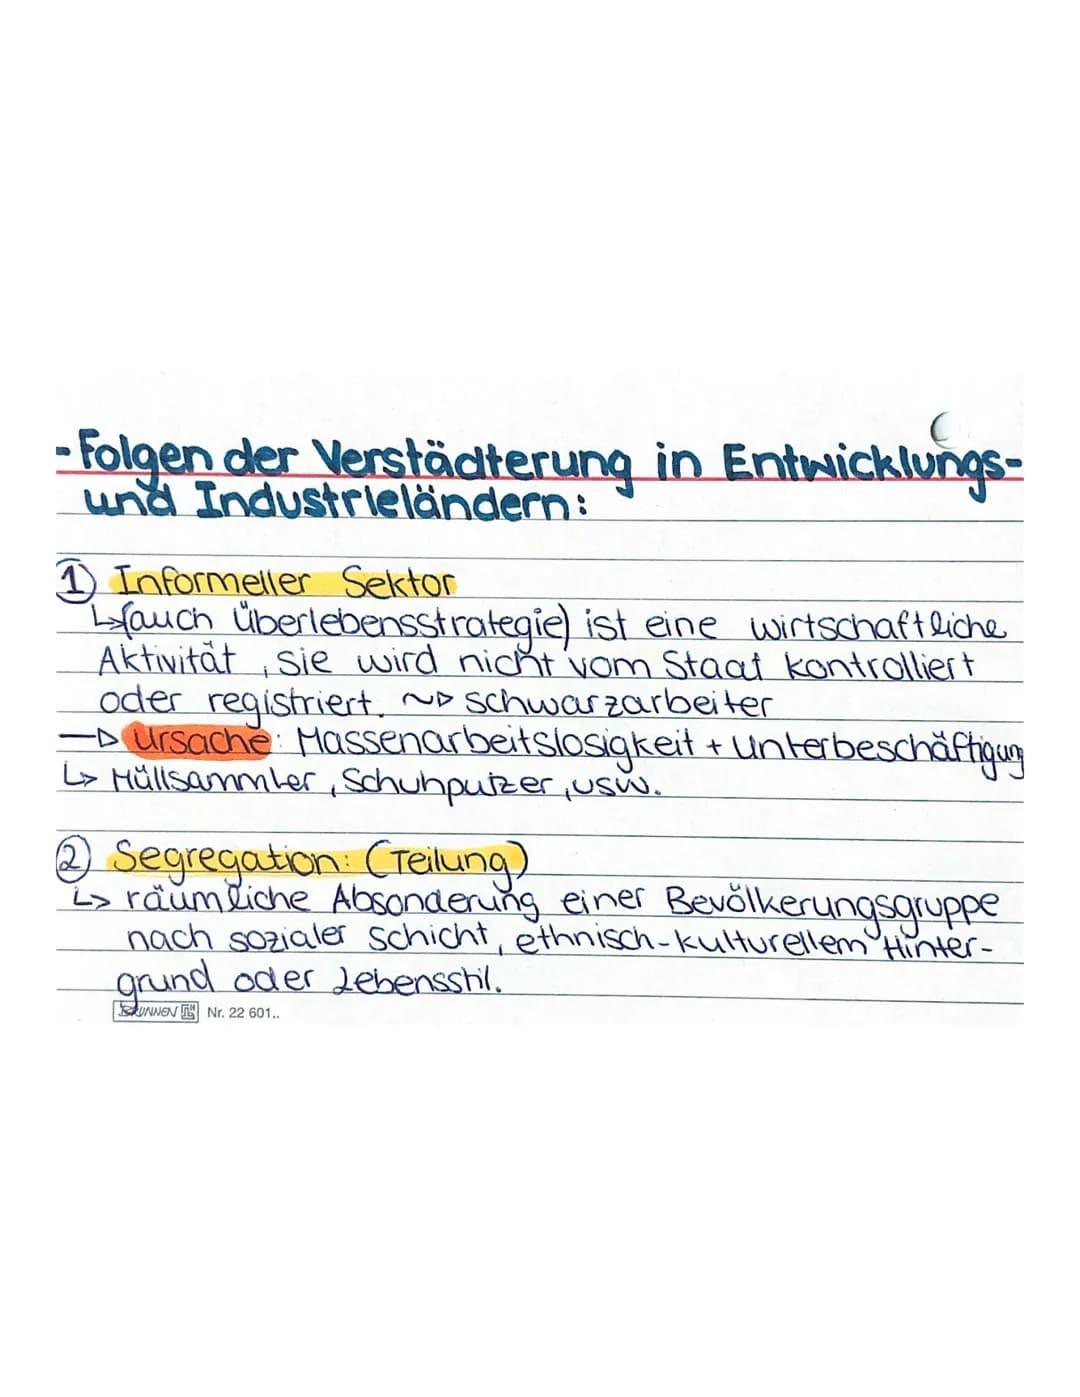 - Folgen der Verstädterung in Entwicklungs-
und Industrieländern:
① Informeller Sektor
↳ (auch Überlebensstrategie) ist eine wirtschaftliche
Aktivität, sie wird nicht vom Staat kontrolliert
oder registriert. ~▷ Schwarzarbeiter
—▷ Ursache: Massenarbeitslosigkeit + Unterbeschäftigung
↳ Müllsammler, Schuhputzer, usw.
② Segregation: (Teilung)
↳ räumliche Absonderung einer Bevölkerungsgruppe
nach sozialer Schicht, ethnisch-kulturellem Hinter-
grund oder Lebensstil.
BRUNNEN Nr. 22 601..